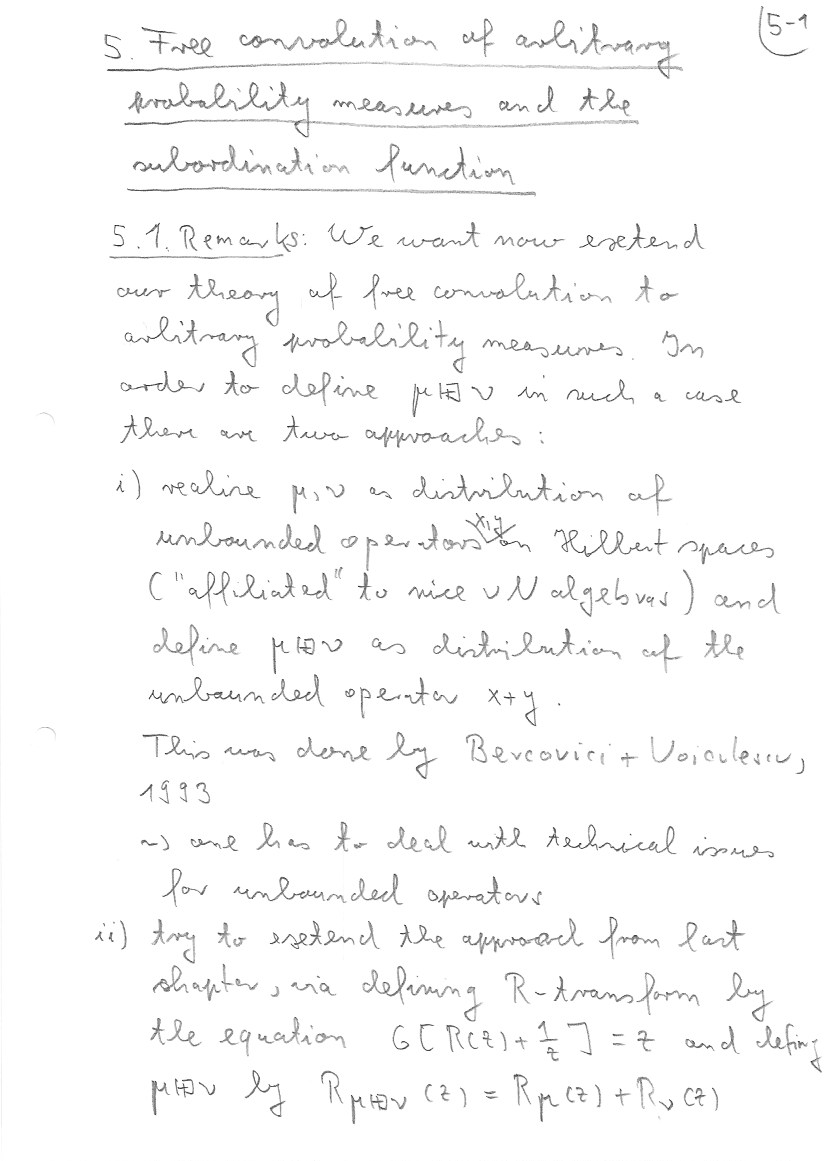 5-1
5. Free convolution of arbitrary
probability measures and the
subordination function
5.1. Remarks: We want now extend
our theory of free convolution to
arbitrary probability measures. In
order to define μ⊞ν in such a case
there are two approaches:
i) realize μ,ν as distribution of
unbounded operators x,y on Hilbert spaces
("affiliated" to nice vN algebras) and
define μ⊞ν as distribution of the
unbounded operator x+y.
This was done by Bercovici + Voiculescu,
1993
~> one has to deal with technical issues
for unbounded operators
ii) try to extend the approach from last
chapter, via defining R-transform by
the equation G[R(z)+1/z] = z and defing
μ⊞ν by R_{μ⊞ν}(z) = R_μ(z) + R_ν(z)